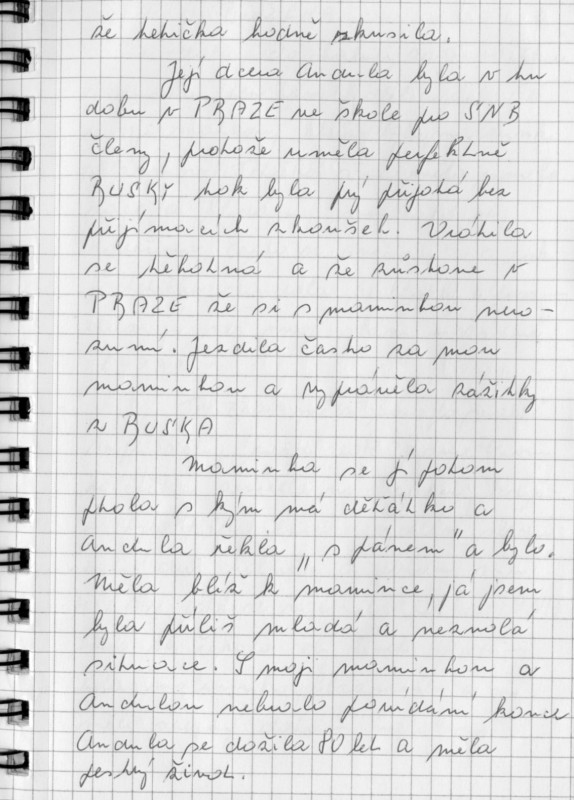 že tetička hodně zkusila.
Její dcera Andula byla v tu
dobu v PRAZE ve škole pro SNB
členy, protože uměla perfektně
RUSKY tak byla prý přijatá bez
přijímacích zkoušek. Vrátila
se těhotná a že zůstane v
PRAZE že si s maminkou nero-
zumí. Jezdila často za mou
maminkou a vyprávěla zážitky
z RUSKA
Maminka se jí potom
ptala s kým má děťátko a
Andula řekla „s pánem" a bylo.
Měla blíž k mamince, já jsem
byla příliš mladá a neznalá
situace. S moji maminkou a
Andulou nebralo povídání konce
Andula se dožila 80 let a měla
pestrý život.